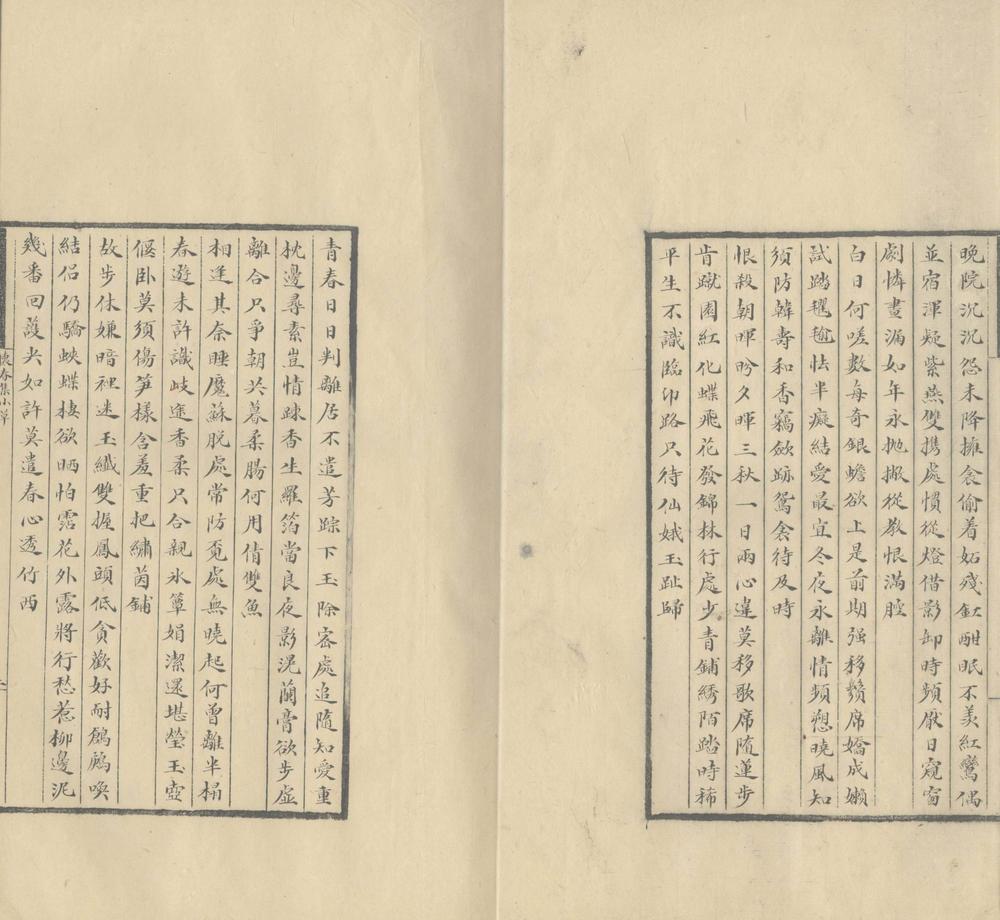 晚院沉沉怨未降擁衾偷着妬殘釭酣眠不羡紅鸞偶
並宿渾疑紫燕雙携處慣從燈借影卸時頻厭日窺窗
劇憐晝漏如年永抛撇從教恨滿腔
白日何嗟數每奇銀蟾欲上是前期强移鬚席嬌成嬾
試踏氍毹怯半癡結愛最宜冬夜永離情頻愬曉風知
須防韓壽和香竊斂跡鴛衾待及時
恨殺朝暉盻夕暉三秋一日兩心違莫移歌席随蓮步
肯蹴園紅化蝶飛花發錦林行處少青鋪綉陌踏時稀
平生不識臨卭路只待仙娥玉趾歸
青春日日判離居不遣芳踪下玉除密處追隨知愛重
枕邊尋素豈情踈香生羅篛當良夜影混蘭膏欲步虛
離合只爭朝共暮柔腸何用倩雙魚
相逢其奈睡魔蘇脫處常防覓處無曉起何曾離半榻
春遊未許識岐途香柔只合親氷簟娟潔還堪瑩玉壺
偃卧莫須傷笋樣含羞重把繡茵鋪
故步休嫌暗裡迷玉纖雙握鳳頭低貪歡好耐鷓鴣喚
結侣仍驕蛺蝶棲欲晒怕霑花外露將行愁惹柳邊泥
幾番回護夬如許莫遣春心透竹西
懷春集小草